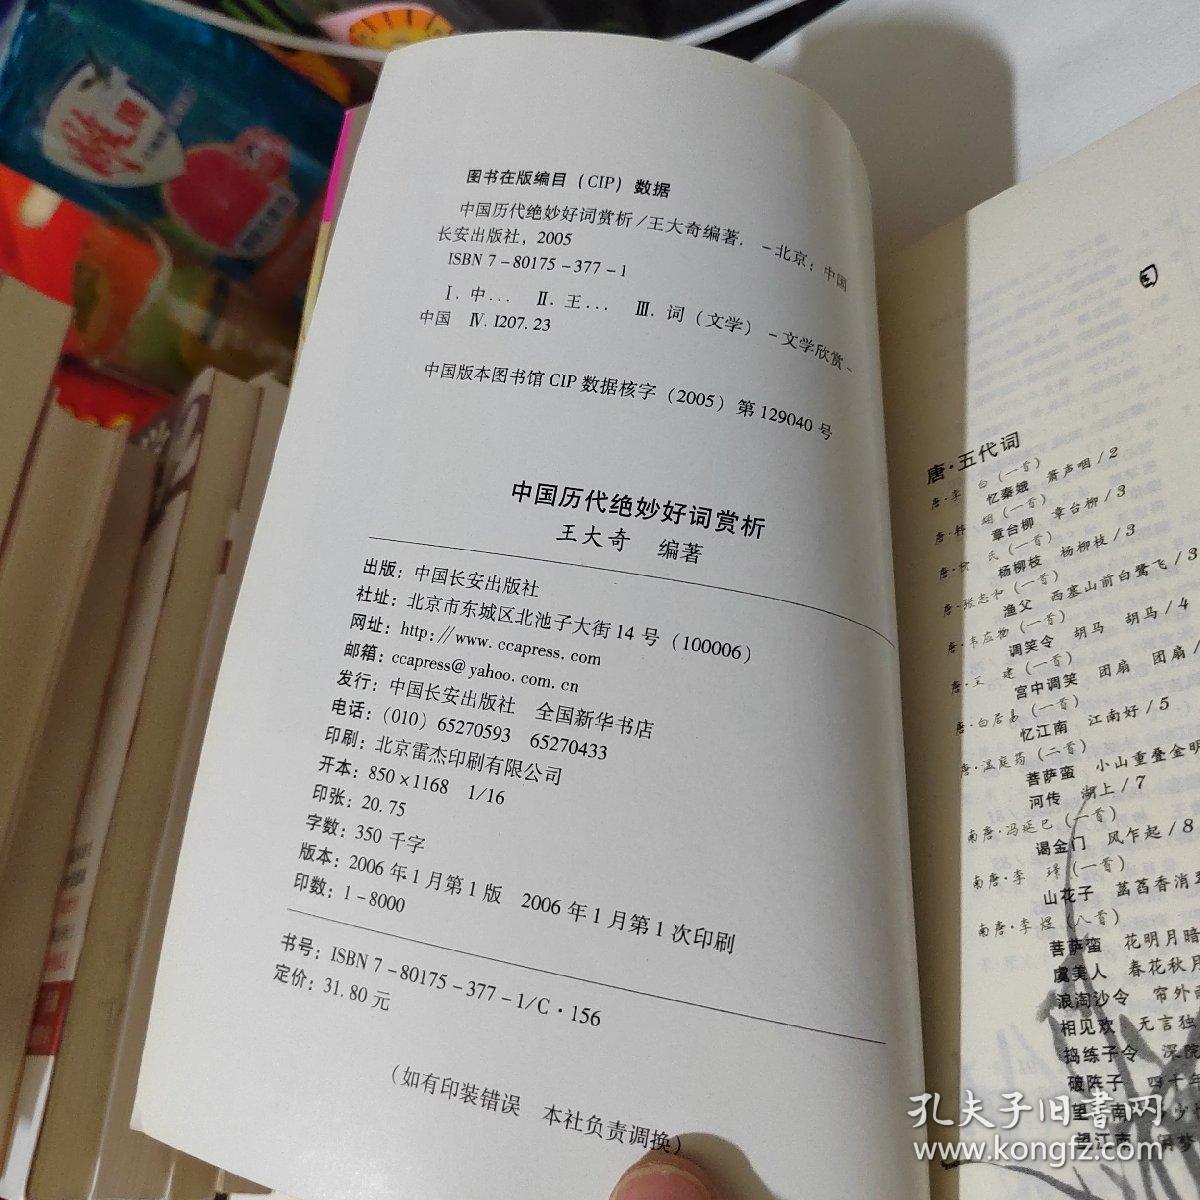 图书在版编目(CIP)数据
中国历代绝妙好词赏析/王大奇编著. -北京:中国
长安出版社,2005
ISBN 7-80175-377-1
Ⅰ.中... Ⅱ.王... Ⅲ.词(文学)-文学欣赏-
中国 Ⅳ.I207.23
中国版本图书馆CIP数据核字(2005)第129040号
中国历代绝妙好词赏析
王大奇 编著
出版:中国长安出版社
社址:北京市东城区北池子大街14号(100006)
网址:http://www.ccapress.com
邮箱:ccapress@yahoo.com.cn
发行:中国长安出版社 全国新华书店
电话:(010)65270593 65270433
印刷:北京雷杰印刷有限公司
开本:850×1168 1/16
印张:20.75
字数:350千字
版本:2006年1月第1版 2006年1月第1次印刷
印数:1-8000
书号:ISBN 7-80175-377-1/C·156
定价:31.80元
(如有印装错误 本社负责调换)
目
唐·五代词
唐·李 白(一首)
忆秦娥 箫声咽/2
唐·韩 翃(一首)
章台柳 章台柳/3
唐·柳 氏(一首)
杨柳枝 杨柳枝/3
唐·张志和(一首)
渔父 西塞山前白鹭飞/3
唐·韦应物(一首)
调笑令 胡马 胡马/4
唐·王 建(一首)
宫中调笑 团扇 团扇/
唐·白居易(一首)
忆江南 江南好/5
唐·温庭筠(二首)
菩萨蛮 小山重叠金明
河传 湖上/7
南唐·冯延巳(一首)
谒金门 风乍起/8
南唐·李 璟(一首)
山花子 菡萏香消
南唐·李煜(八首)
菩萨蛮 花明月暗
虞美人 春花秋月
浪淘沙令 帘外雨
相见欢 无言独
捣练子令 深院
破阵子 四十年
望江南
望江南 闲梦
孔夫子旧书网
www.kongfz.com